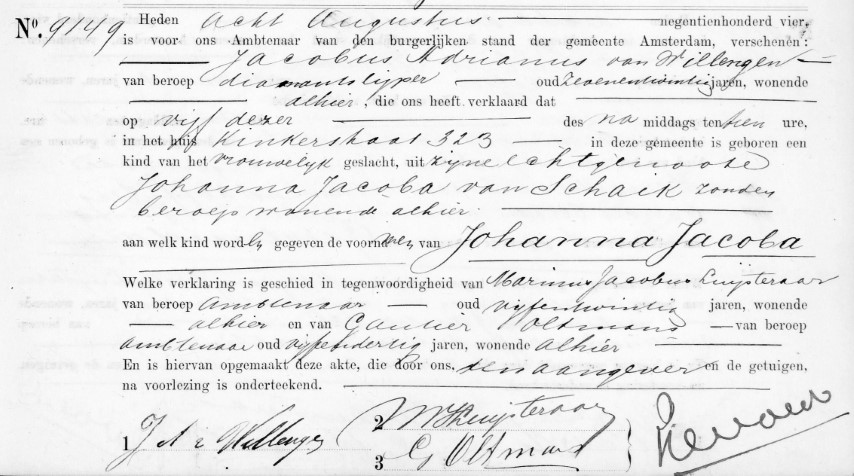 No. 9149 Heden Acht Augustus negentienhonderd vier,
is voor ons Ambtenaar van den burgerlijken stand der gemeente Amsterdam, verschenen:
Jacobus Adrianus van Willengen
van beroep diamantslijper oud zevenentwintig jaren, wonende
alhier, die ons heeft verklaard dat
op vijf dezer des na middags ten tien ure,
in het huis Kinkerstraat 323 in deze gemeente is geboren een
kind van het vrouwelijk geslacht, uit zijne Echtgenoote
Johanna Jacoba van Schaik zonder
beroep wonende alhier.
aan welk kind worden gegeven de voornamen van Johanna Jacoba
Welke verklaring is geschied in tegenwoordigheid van Marinus Jacobus Luijsteraar
van beroep Ambtenaar oud vijfentwintig jaren, wonende
alhier en van Gautier Oltmans van beroep
ambtenaar oud vijfendertig jaren, wonende alhier
En is hiervan opgemaakt deze akte, die door ons, den aangever en de getuigen,
na voorlezing is onderteekend.
1 J A v Willengen
2 M J Luijsteraar
3 G Oltmans